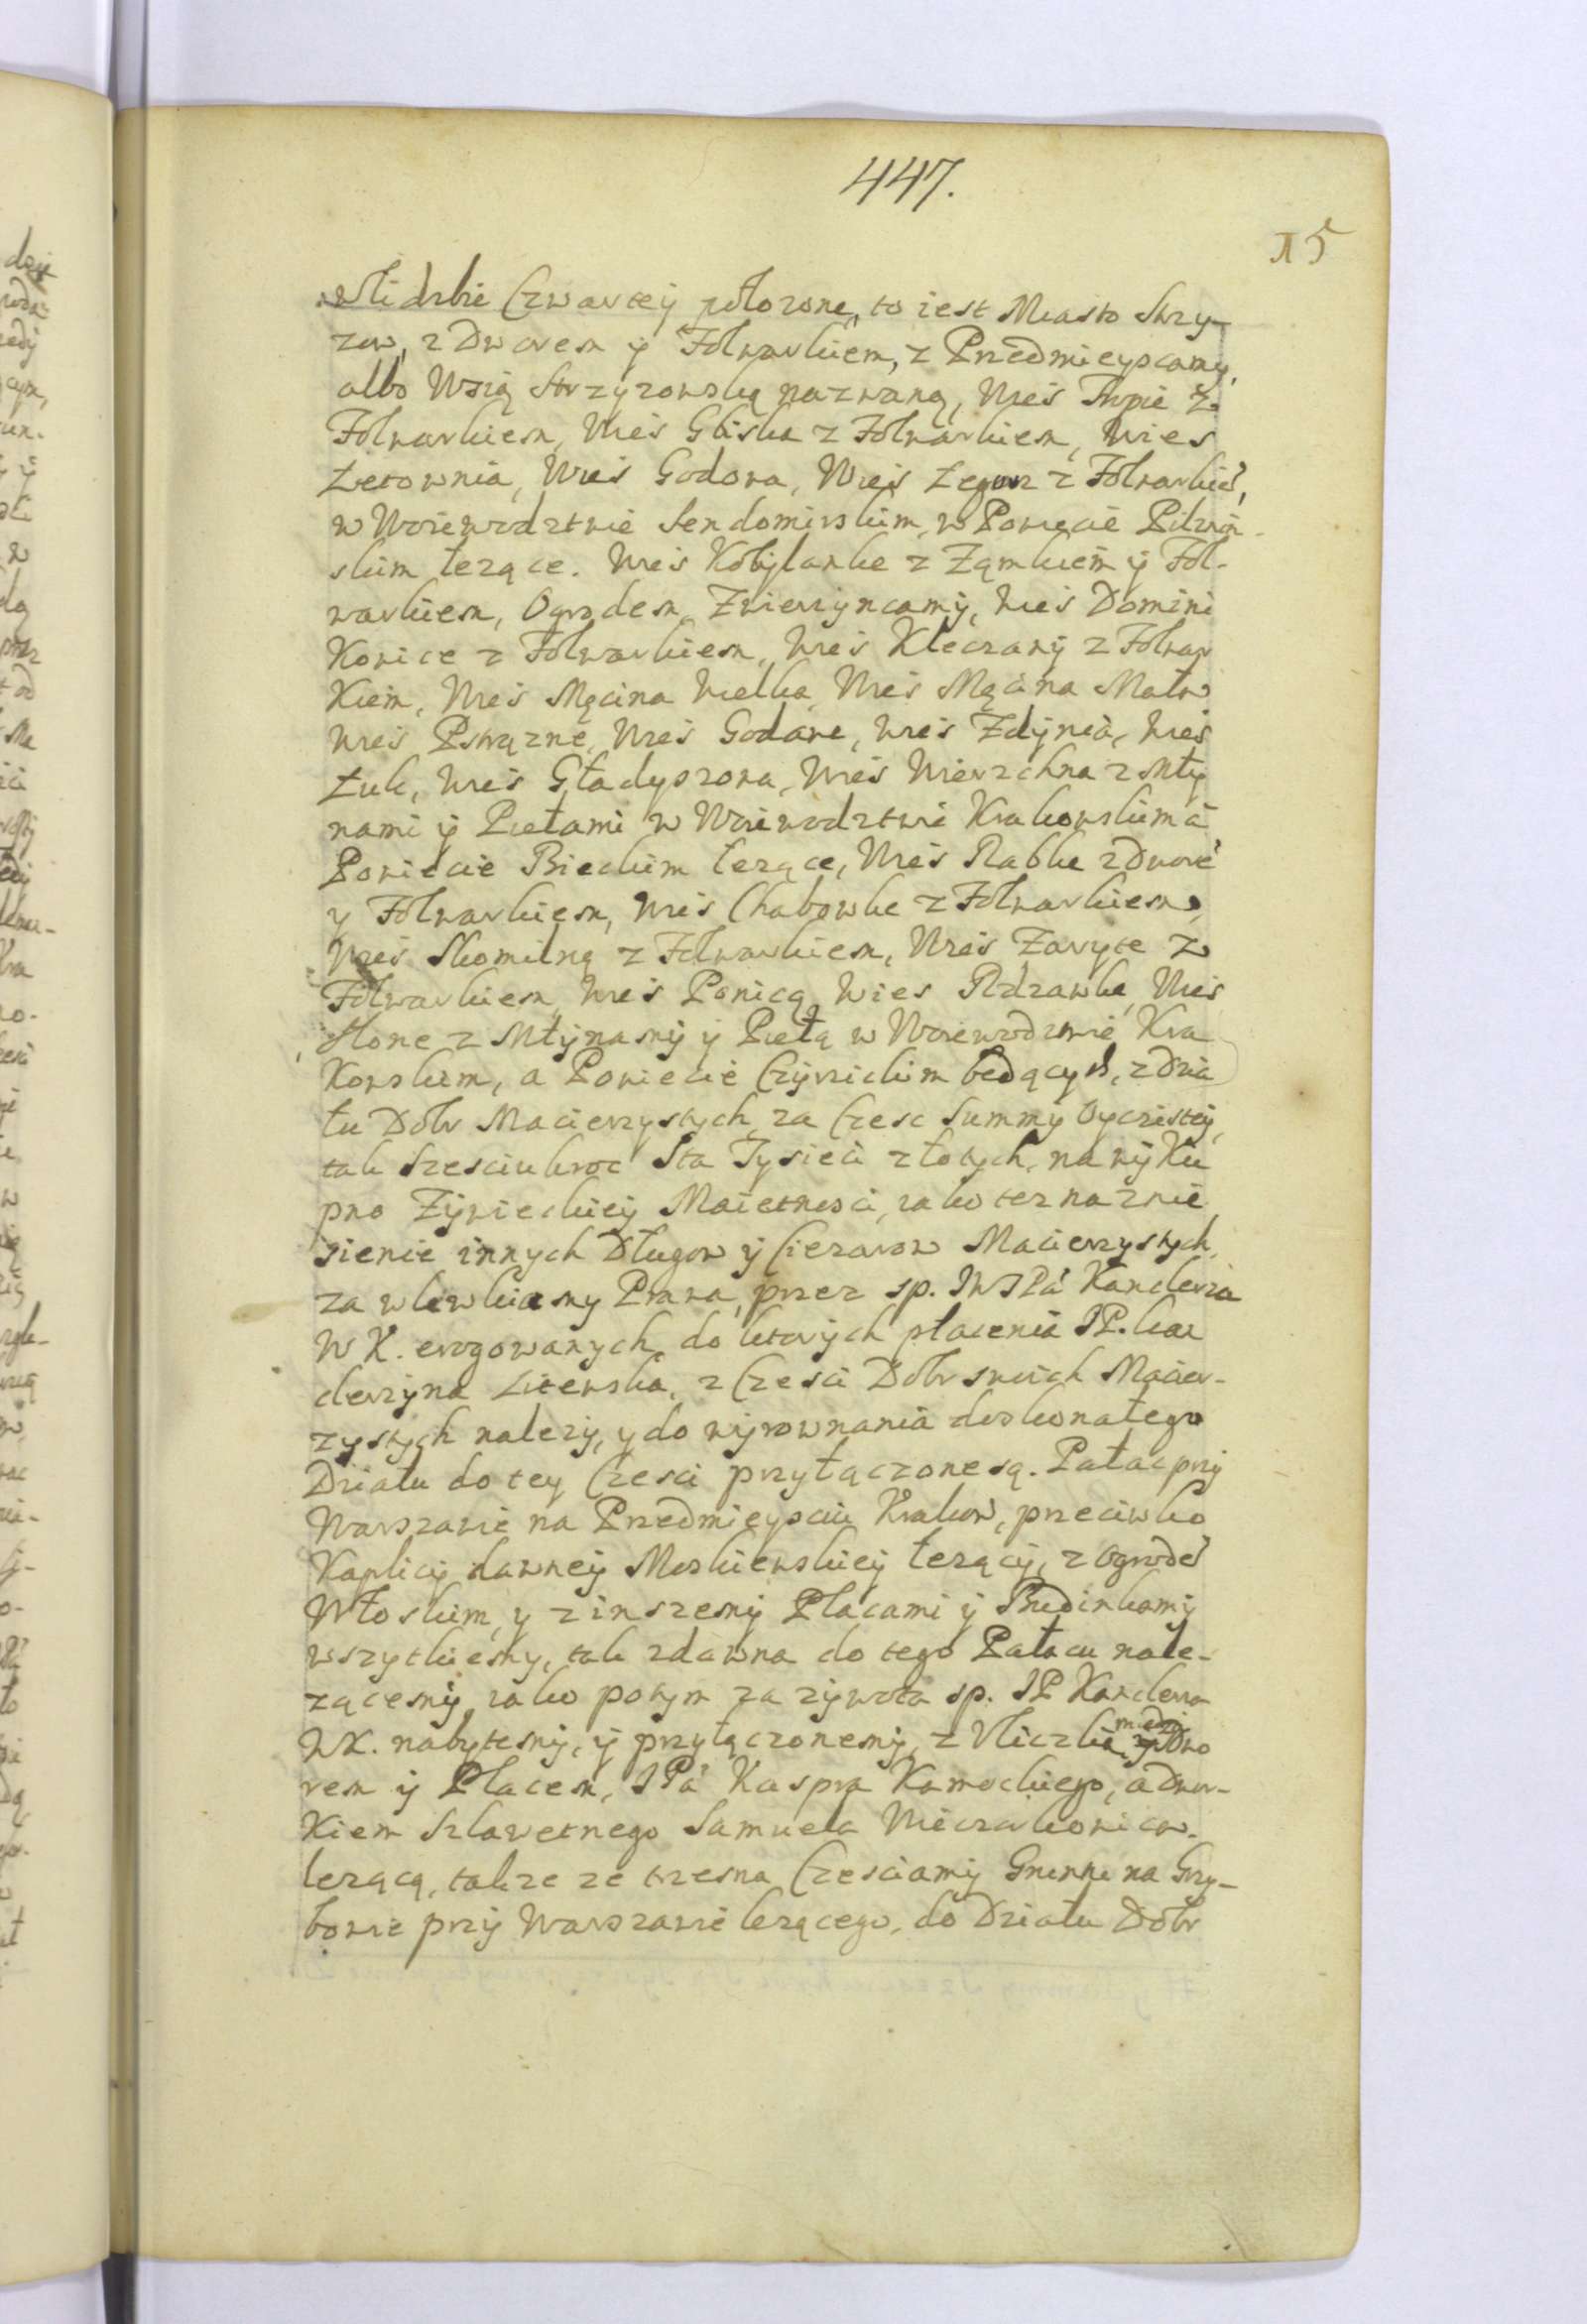 447.
15
w Liczbie Czwartey położone, to iest Miasto Strzy-
zow, z Dworem ÿ Folwarkiem, z Przedmieyscamy,
albo Wsią Strzyzowską nazwaną, Wieś Tropie z
Folwarkiem, Wieś Gliska z Folwarkiem, Wies
Łetownia, Wieś Godowa, Wieś Zegurz z Folwarkiē,
w Woiewodztwie Sendomirskim, w Powiecie Pilznēn
skim leżące. Wieś Kobÿlanke z Zamkiem ÿ Fol-
warkiem, Ogrodem, Zwierzyncamÿ, Wieś Domini
Kowice z Folwarkiem, Wieś Kleczanÿ z Folwar
Kiem, Wieś Męcina Wielka, Wieś Męcina Mała
Wieś Pstrązne, Wieś Godawe, Wieś Zdÿnia, Wieś
Ług, Wieś Gładyszowa, Wieś Wierzchna z Młÿ
nami ÿ Piełami w Woiewodztwie Krakowskim a
Powiecie Bieckim leżące, Wieś Rabke z Dworē
y Folwarkiem, Wieś Chabowke z Folwarkiem,
Wieś Skomilną z Folwarkiem, Wieś Zaryte z
Folwarkiem, Wieś Ponicą, Wies Rdzawke, Wieś
Słone z Młÿnamÿ ÿ Piełą w Woiewodztwie Kra
Kowskim, a Powiecie Czÿrzickim będących, z Dzia
łu Dobr Macierzystych, za Czesc Summy Oyczistey,
tak Szesciukroc Sta Tysieci złotych, na wÿKu
pno Zÿwieckieÿ Maietnosci, iako tez na znie
sienie innych Długow ÿ Cięzarow Macierzystych,
za wlewkiamy Prawa, przez sp. JWJPā Kanclerza
W K. erogowanych, do ktorÿch płacenia JP. kan
clerzÿna Litewska, z Czesci Dobr swoich Macier-
zystych nalezÿ, y do wÿrownania doskonałego
Działu do tey Czesci przyłączone są. Pałac przÿ
Warszawie na Przedmieysciu Krakow, przeciwko
Kaplicÿ dawneÿ Moskiewskieÿ leżącÿ, z Ogrodē
Włoskim, y z inszemÿ Placami ÿ Budinkamÿ
wszytkiemy, tak zdawna do tego Pałacu nale-
zącemÿ, iako potym za zÿwota sp. JP Kanclerza
WK. nabytemÿ, ÿ przyłączonemÿ, z Vliczką między Dwo
rem ÿ Placem, JPā Kaspra Kamockiego, a Dwor-
Kiem Szlawetnego Samuela Wieczorkowica
lezącą, takze ze trzema Czesciamÿ Gruntu na Grzy-
bowie przÿ Warszawie lezącego, do Działu Dobr